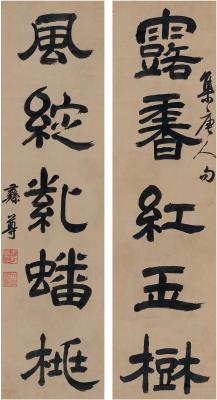 集唐人句
露香紅玉樹
風綻紫蟠桃
彝尊